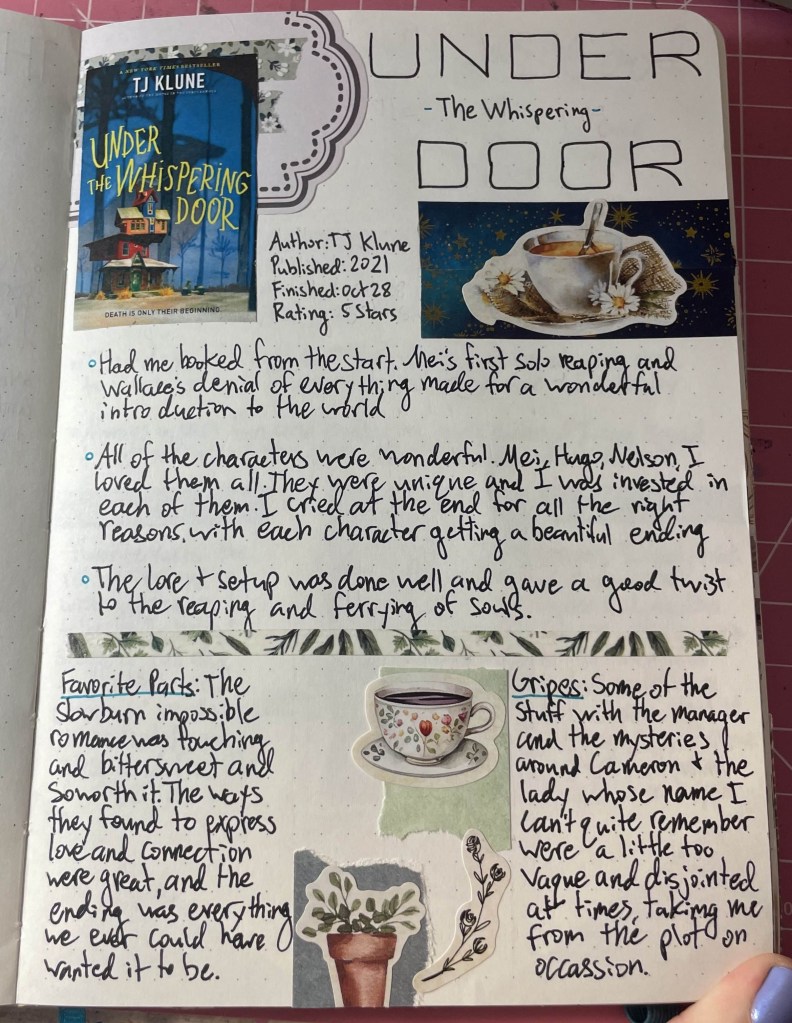 A NEW YORK TIMES BESTSELLER
TJ KLUNE
UNDER
THE WHISPERING
DOOR
DEATH IS ONLY THEIR BEGINNING.
UNDER
-The Whispering-
DOOR
Author: TJ Klune
Published: 2021
Finished: Oct 28
Rating: 5 Stars
Had me hooked from the start. Mei's first solo reaping and
Wallace's denial of everything made for a wonderful
introduction to the world
All of the characters were wonderful. Mei, Hugo, Nelson, I
loved them all. They were unique and I was invested in
each of them. I cried at the end for all the right
reasons, with each character getting a beautiful ending
The lore + setup was done well and gave a good twist
to the reaping and ferrying of souls.
Favorite Parts: The
slowburn impossible
romance was touching
and bittersweet and
so worth it. The ways
they found to express
love and connection
were great, and the
ending was everything
we ever could have
wanted it to be.
Gripes: Some of the
stuff with the manager
and the mysteries
around Cameron + the
lady whose name I
can't quite remember
were a little too
vague and disjointed
at times, taking me
from the plot on
occassion.